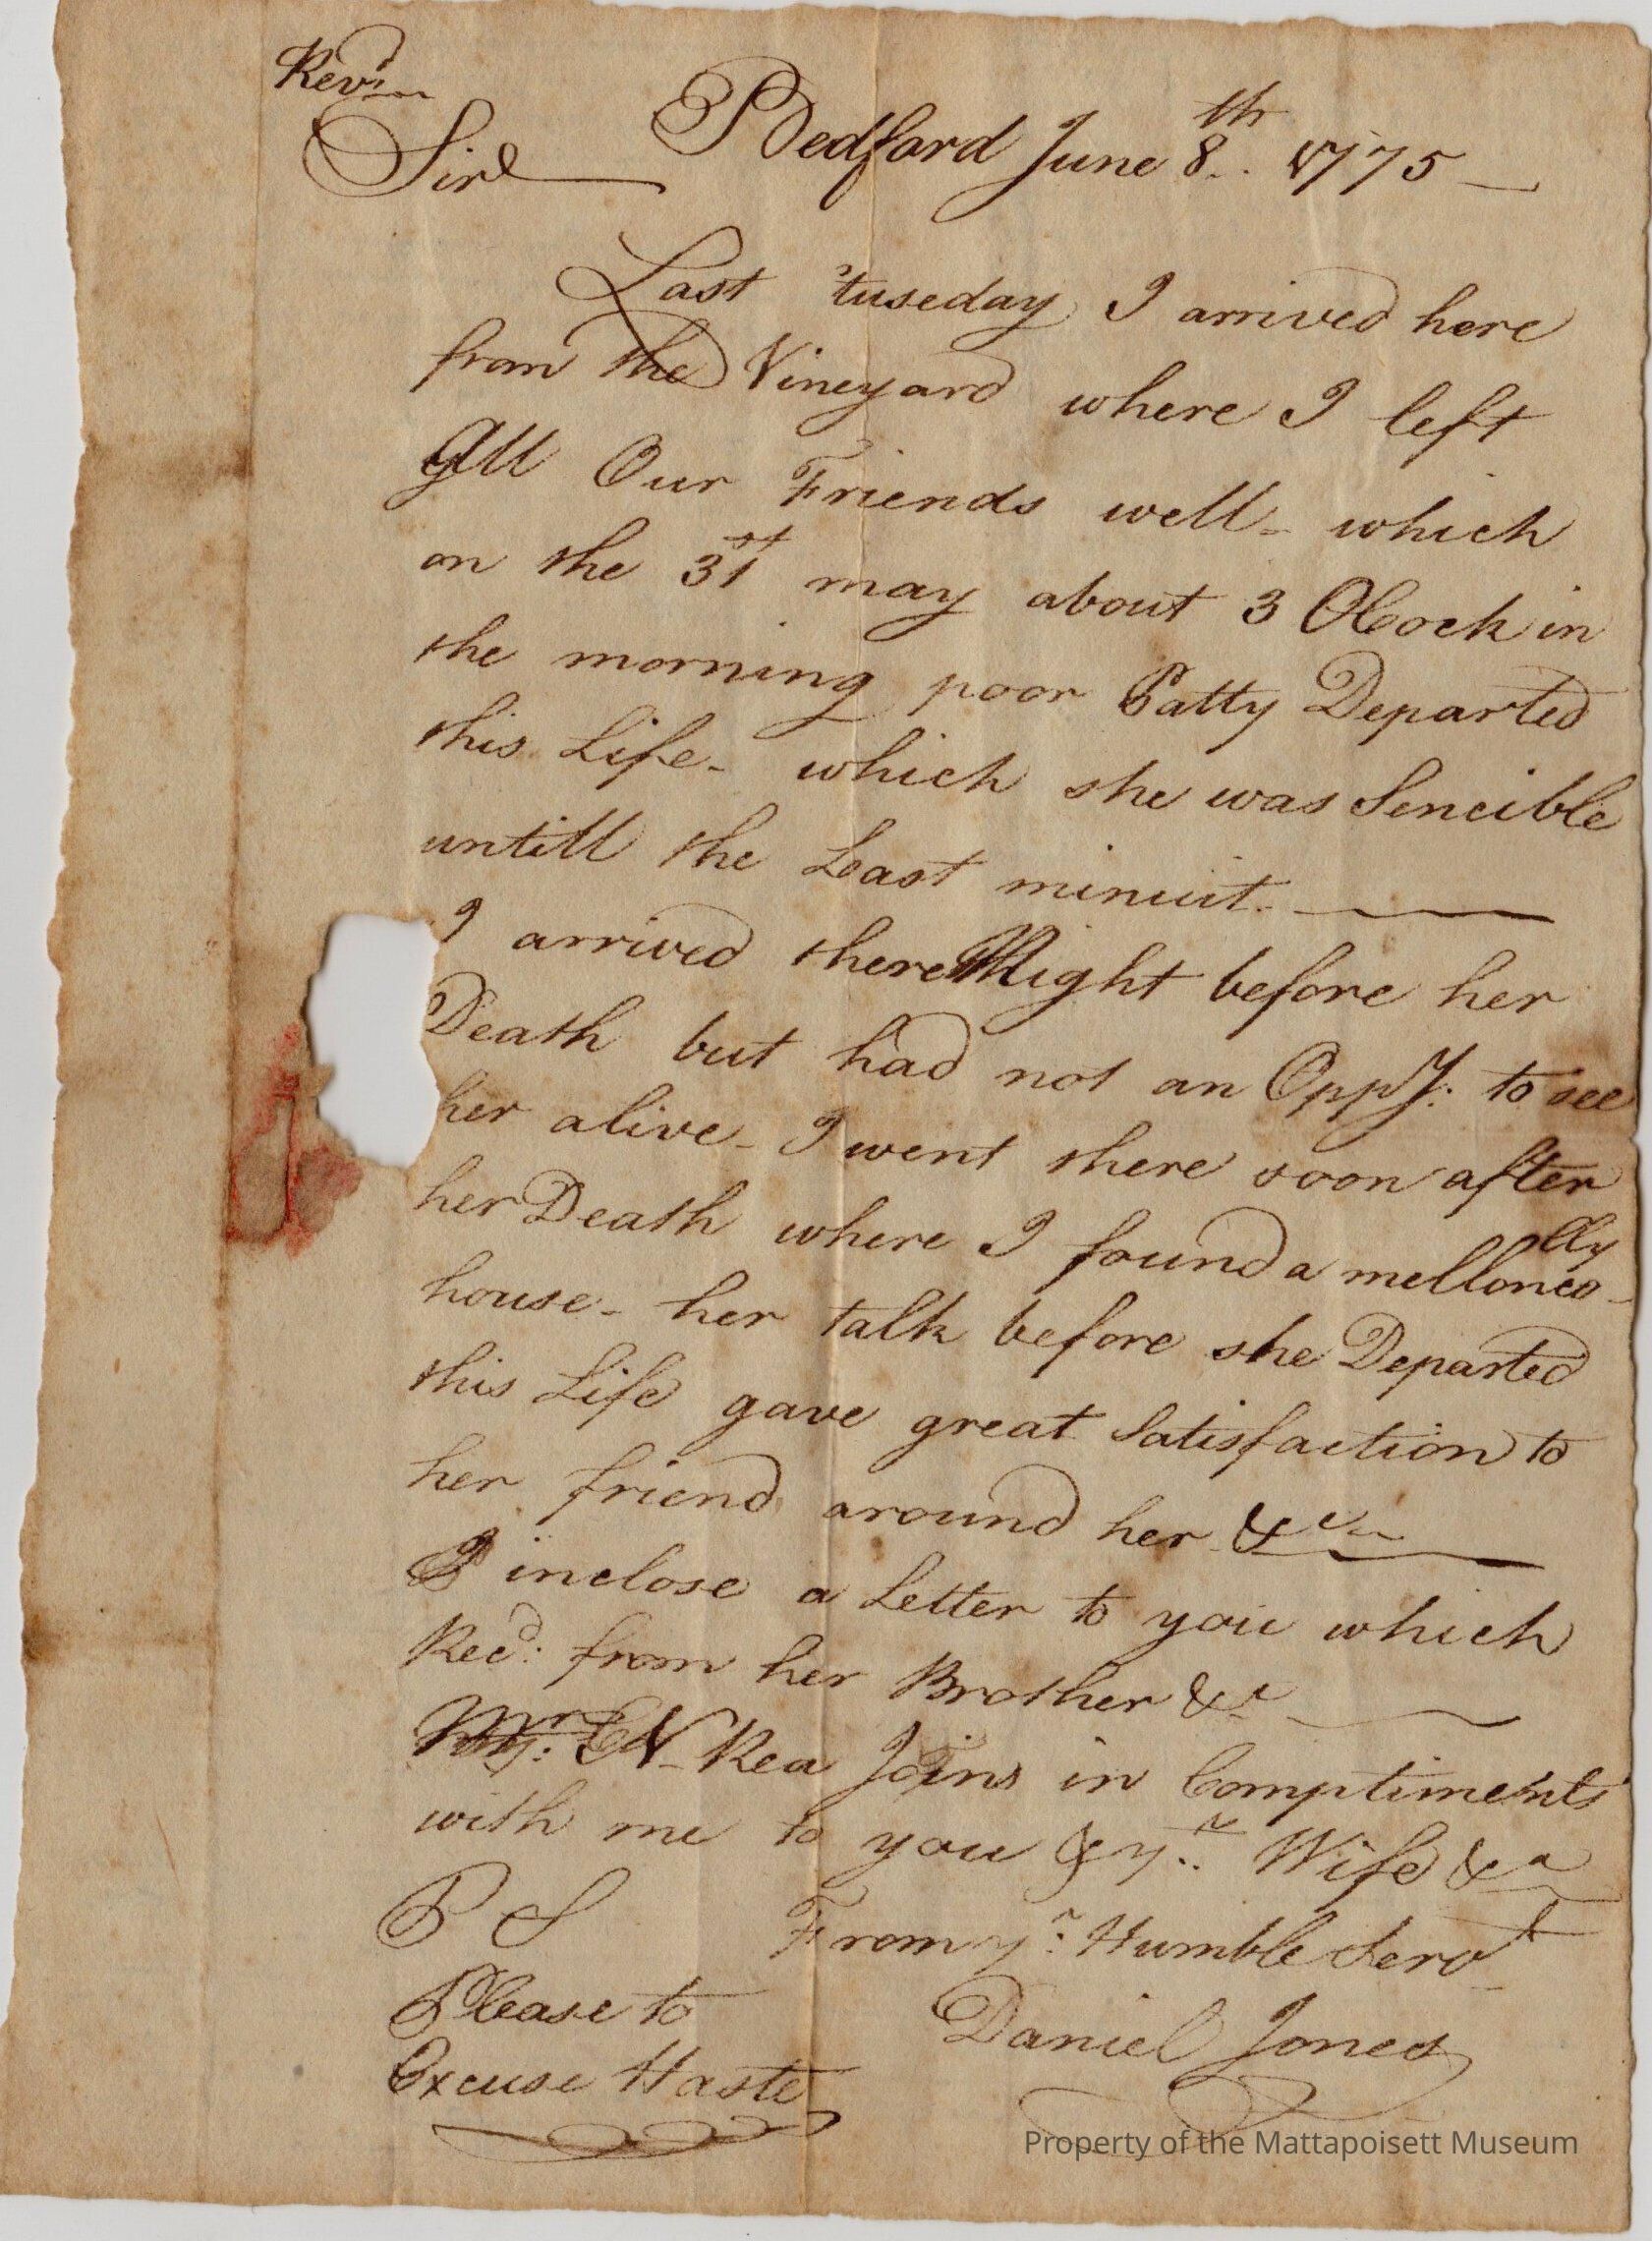 Revd
Sir Bedford June 8th.. 1775
Last tuseday I arrived here
from the Vineyard where I left
All Our Friends well - which
on the 31st may about 3 OClock in
the morning poor Patty Departed
this Life - which she was Sencible
untill the Least minuit.
I arrived there Night before her
Death but had not an Oppy: to see
her alive - I went there soon after
her Death where I found a melloncolly
house - her talk before she Departed
this Life gave great Satisfaction to
her friend around her &c
I inclose a Letter to you which
Recd: from her Brother &c
Rea Joins in Compliments
with me to you & yr.. Wife &c
P S From yr: Humble Servt
Please to Daniel Jones
Excuse Haste
Property of the Mattapoisett Museum